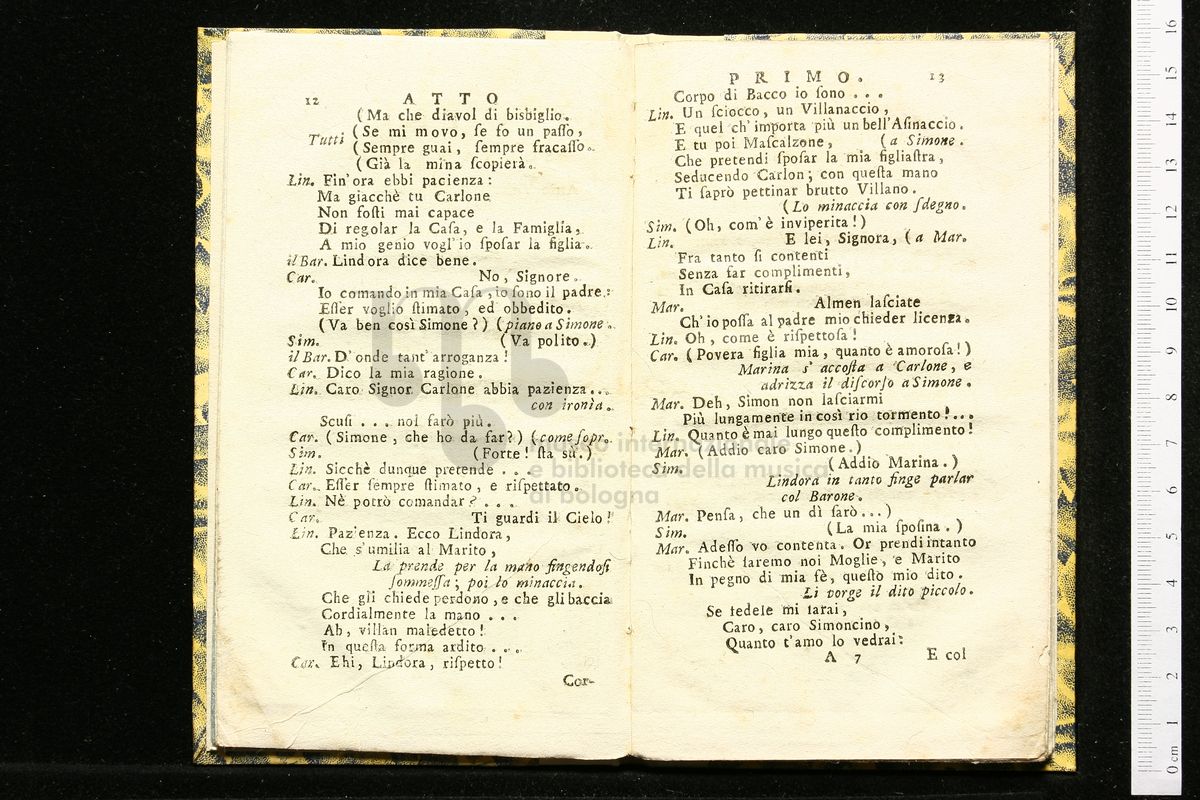 12 ATTO
(Ma che diavol di bisbiglio.
Tutti (Se mi movo, se fo un paſſo,
(Sempre guai, ſempre fracaſſo.
(Già la mina ſcopierà.
Lin. Fin'ora ebbi pacienza:
Ma giacchè tu Carlone
Non foſti mai capace
Di regolar la Caſa, e la Famiglia,
A mio genio vogl'io ſpoſar la figlia.
il Bar. Lindora dice bene.
Car. No, Signore.
Io comando in mia Caſa, io ſono il padre:
Eſſer voglio ſtimato, ed obbedito.
(Va ben così Simone?) (piano a Simone.
Sim. (Va polito.)
il Bar. D'onde tant'arroganza!
Car. Dico la mia ragione.
Lin. Caro Signor Carlone abbia pazienza...
con ironìa.
Scuſi ... nol farò più.
Car. (Simone, che ho da far?) (come ſopr.
Sim. (Forte! ſta su.)
Lin. Sicchè dunque pretende ...
Car. Eſſer ſempre ſtimato, e riſpettato.
Lin. Nè potrò comandar? ...
Car. Ti guardi il Cielo!
Lin. Pazienza. Ecco Lindora,
Che s'umilia al Marito,
La prende per la mano fingendoſi
ſommeſſa; poi lo minaccia.
Che gli chiede perdono, e che gli baccia
Cordialmente la mano ...
Ah, villan maledetto!
In queſta forma ardito ...
Car. Ehi, Lindora, riſpetto!
Cor-
PRIMO. 13
Corpo di Bacco io ſono ...
Lin. Un ſciocco, un Villanaccio
E quel ch'importa più un bell'Aſinaccio.
E tu poi Maſcalzone, (a Simone.
Che pretendi ſpoſar la mia figliaſtra,
Seducendo Carlon; con queſta mano
Ti ſaprò pettinar brutto Villano.
(Lo minaccia con ſdegno.
Sim. (Oh, com'è inviperita!)
Lin. E lei, Signora, (a Mar.
Fra tanto ſi contenti
Senza far complimenti,
In Caſa ritirarſi.
Mar. Almen laſciate
Ch'io poſſa al padre mio chieder licenza.
Lin. Oh, come è riſpettoſa!
Car. (Povera figlia mia, quanto è amoroſa!)
Marina s'accoſta a Carlone, e
adrizza il diſcorſo a Simone.
Mar. Deh, Simon non laſciarmi
Più lungamente in così rio tormento!...
Lin. Quanto è mai lungo queſto complimento!
Mar. (Addio caro Simone.)
Sim. (Addio Marina.)
Lindora in tanto finge parlar
col Barone.
Mar. Penſa, che un dì ſarò...)
Sim. (La mia ſpoſina.)
Mar. Adeſſo vo contenta. Or prendi intanto
Finchè ſaremo noi Moglie, e Marito
In pegno di mia fè, queſto mio dito.
Li porge il dito piccolo.
Se fedele mi ſarai,
Caro, caro Simoncino,
Quanto t'amo lo vedrai:
A 7 E col
museo internazionale
e biblioteca della musica
di bologna
0 cm 1 2 3 4 5 6 7 8 9 10 11 12 13 14 15 16